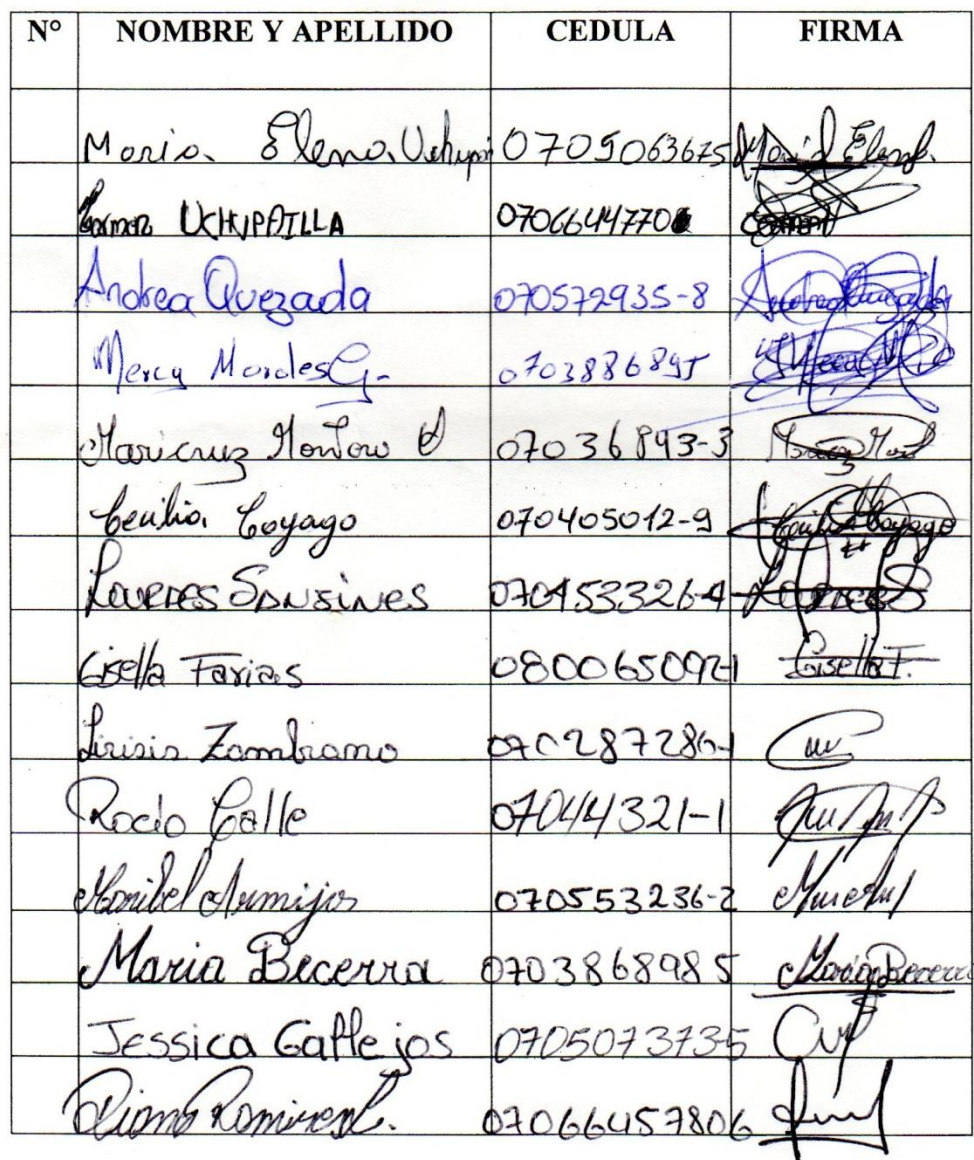 N° NOMBRE Y APELLIDO CEDULA FIRMA
Maria Elena Uchupai 0705063675 Maria Elena
Carmen UCHUPAILLA 0706644770
Andrea Quezada 070572935-8 Andrea Quezada
Mercy Morales G. 0703886895
Maricruz Montero 07036893-3
Cecilia Coyago 070405012-9 Cecilia Coyago
070453326-4
Gisella Farias 080065092-1 Gisella F.
Zambrano 070287286-1
Rocio Calle 07044321-1
Maribel Armijos 070553236-2
Maria Becerra 0703868985 Maria Becerra
Jessica Gallejos 070507373-5
Diana Ramirez 07066457806